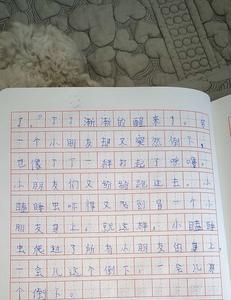 了。丁丁渐渐的醒来了，另
一个小朋友却又突然倒下，
也像丁丁一样打起了呼噜。
小朋友们又纷纷跑过去，小
瞌睡虫吓得又到另一个小
朋友身上，就这样，小瞌睡
虫爬过了所有小朋友的身上，
一会儿这个倒下，一会儿那
个倒下。